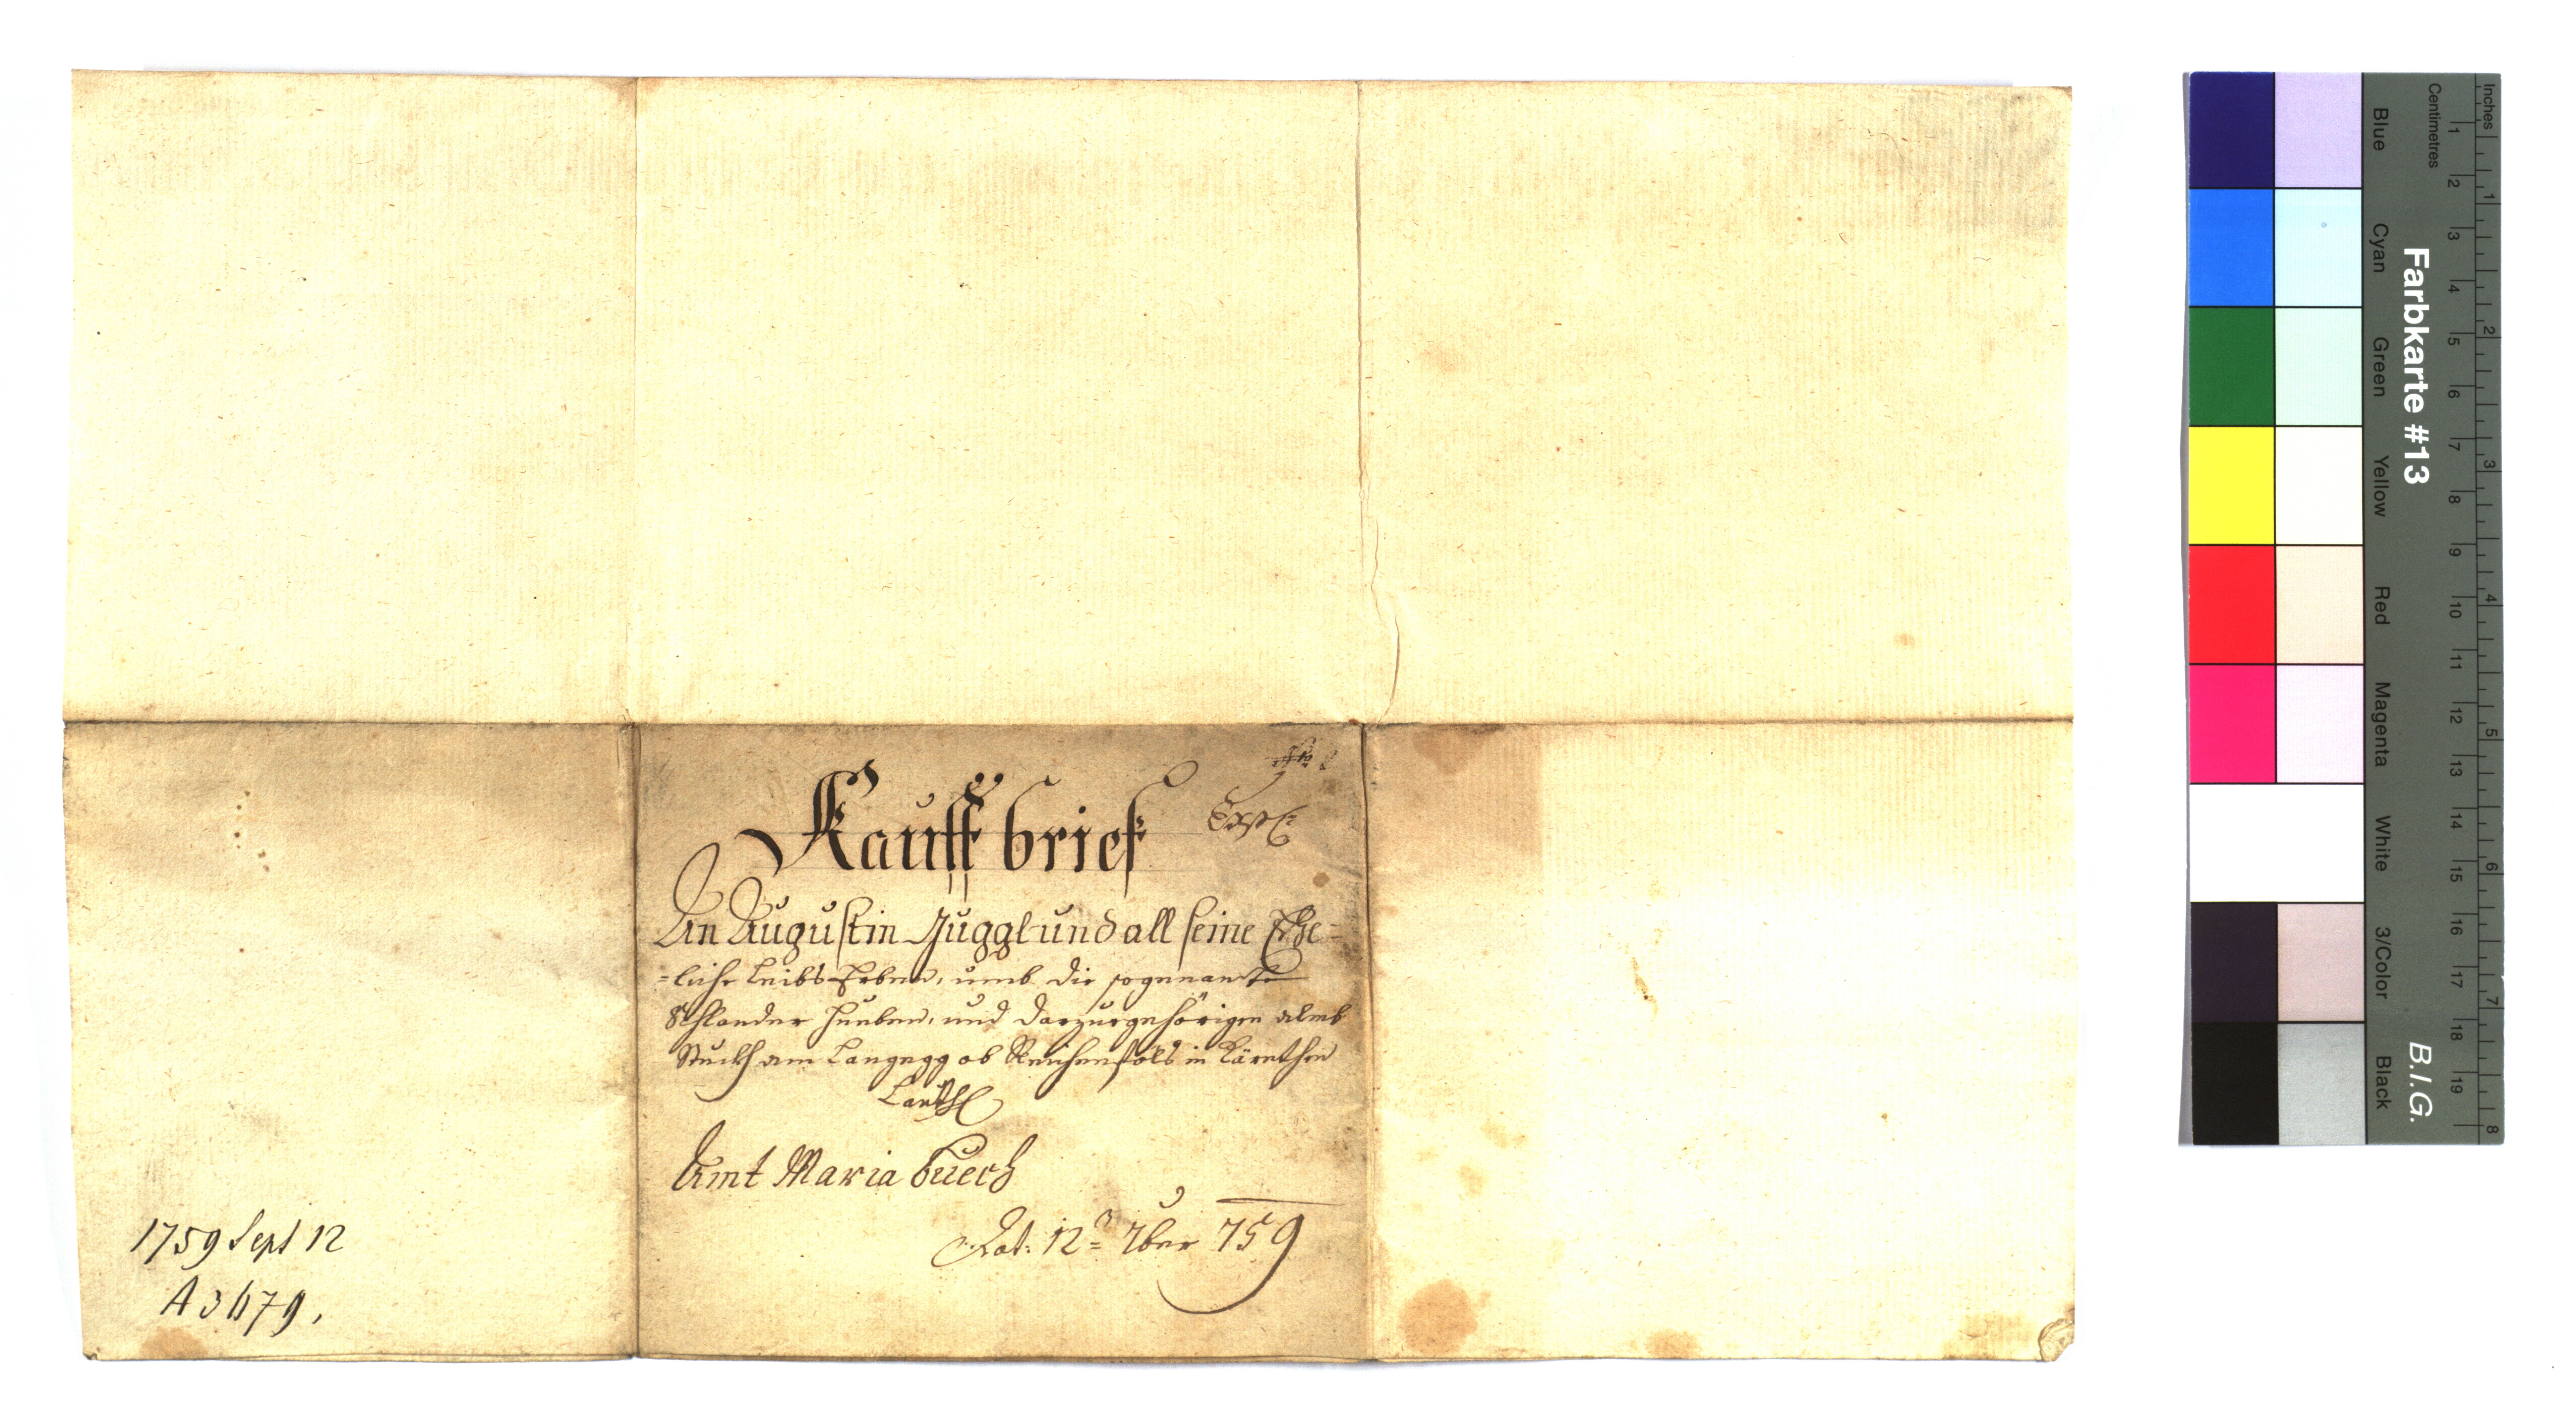 Kauff brief
An Augustin Juggl und all seine Ehe=
=liche Leibs Erben, umb die sogenante
Schlander Hueben, und darzuegehörigen almb
Stuckh am Langegg ob Reichenföls in Kärnthen
Amt Maria buech
Dat: 12= 7ber 759
1759 Sept 12
A 3679,
Inches
Centimetres
1 2 3 4 5 6 7 8 9 10 11 12 13 14 15 16 17 18 19
1 2 3 4 5 6 7 8
Farbkarte #13
B.I.G.
Blue
Cyan
Green
Yellow
Red
Magenta
White
3/Color
Black